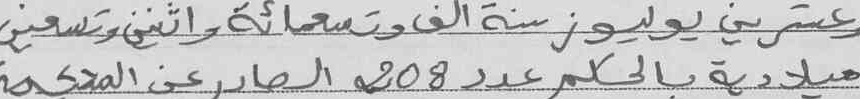 وعشرين يوليوز سنة الف وتسعمائة واثنين وتسعين
ميلادية بالحكم عدد 208 الصادر عن المحكمة